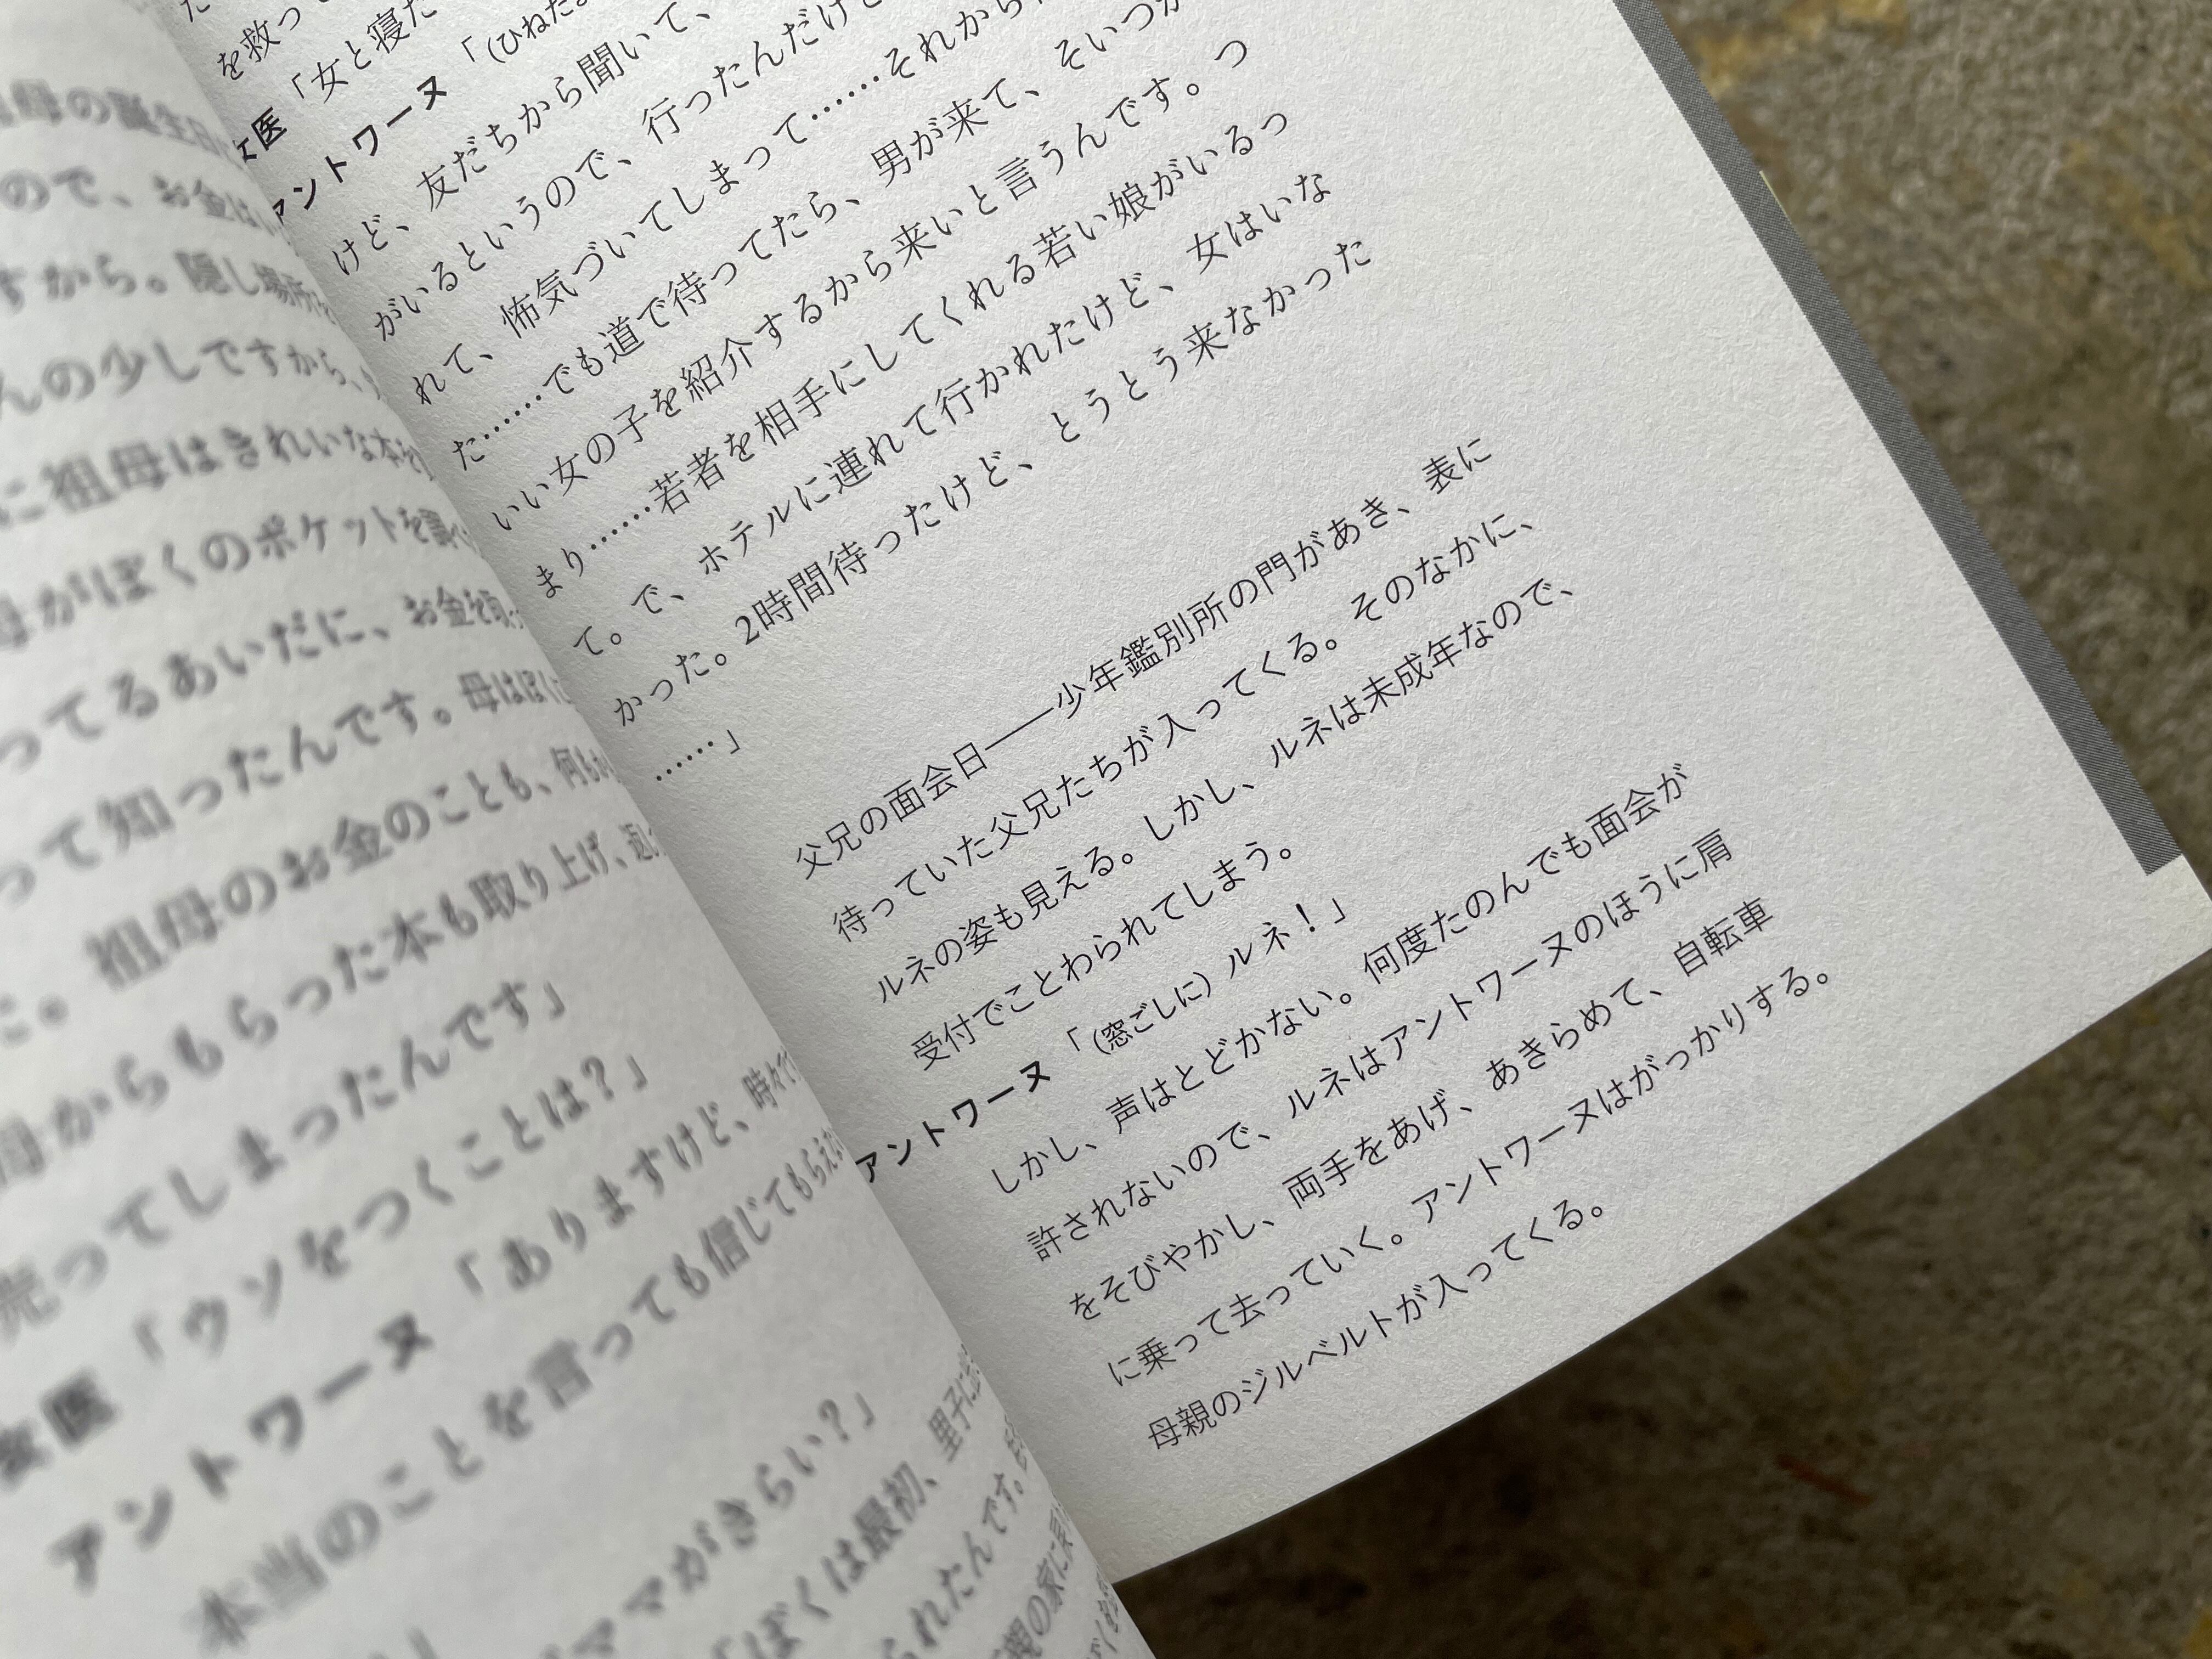 母の誕生日
ので、お金は
すから。隠し場所
んの少しですから、
に祖母はきれいな本を
母がぼくのポケットを調べ
ってるあいだに、お金を
って知ったんです。母はぼくに
た。祖母のお金のことも、何もか
母からもらった本も取り上げ、返し
売ってしまったんです」
女医「ウソをつくことは?」
アントワーヌ「ありますけど、時々で
本当のことを言っても信じてもらえな
ママがきらい?」
「ぼくは最初、里子に
られたんです。
を救って
女医「女と寝た
アントワーヌ「(ひねた
けど、友だちから聞いて、
がいるというので、行ったんだけど
れて、怖気づいてしまって……それから
た……でも道で待ってたら、男が来て、そいつが
いい女の子を紹介するから来いと言うんです。つ
まり……若者を相手にしてくれる若い娘がいるっ
て。で、ホテルに連れて行かれたけど、女はいな
かった。2時間待ったけど、とうとう来なかった
……」
父兄の面会日――少年鑑別所の門があき、表に
待っていた父兄たちが入ってくる。そのなかに、
ルネの姿も見える。しかし、ルネは未成年なので、
受付でことわられてしまう。
アントワーヌ「(窓ごしに)ルネ!」
しかし、声はとどかない。何度たのんでも面会が
許されないので、ルネはアントワーヌのほうに肩
をそびやかし、両手をあげ、あきらめて、自転車
に乗って去っていく。アントワーヌはがっかりする。
母親のジルベルトが入ってくる。